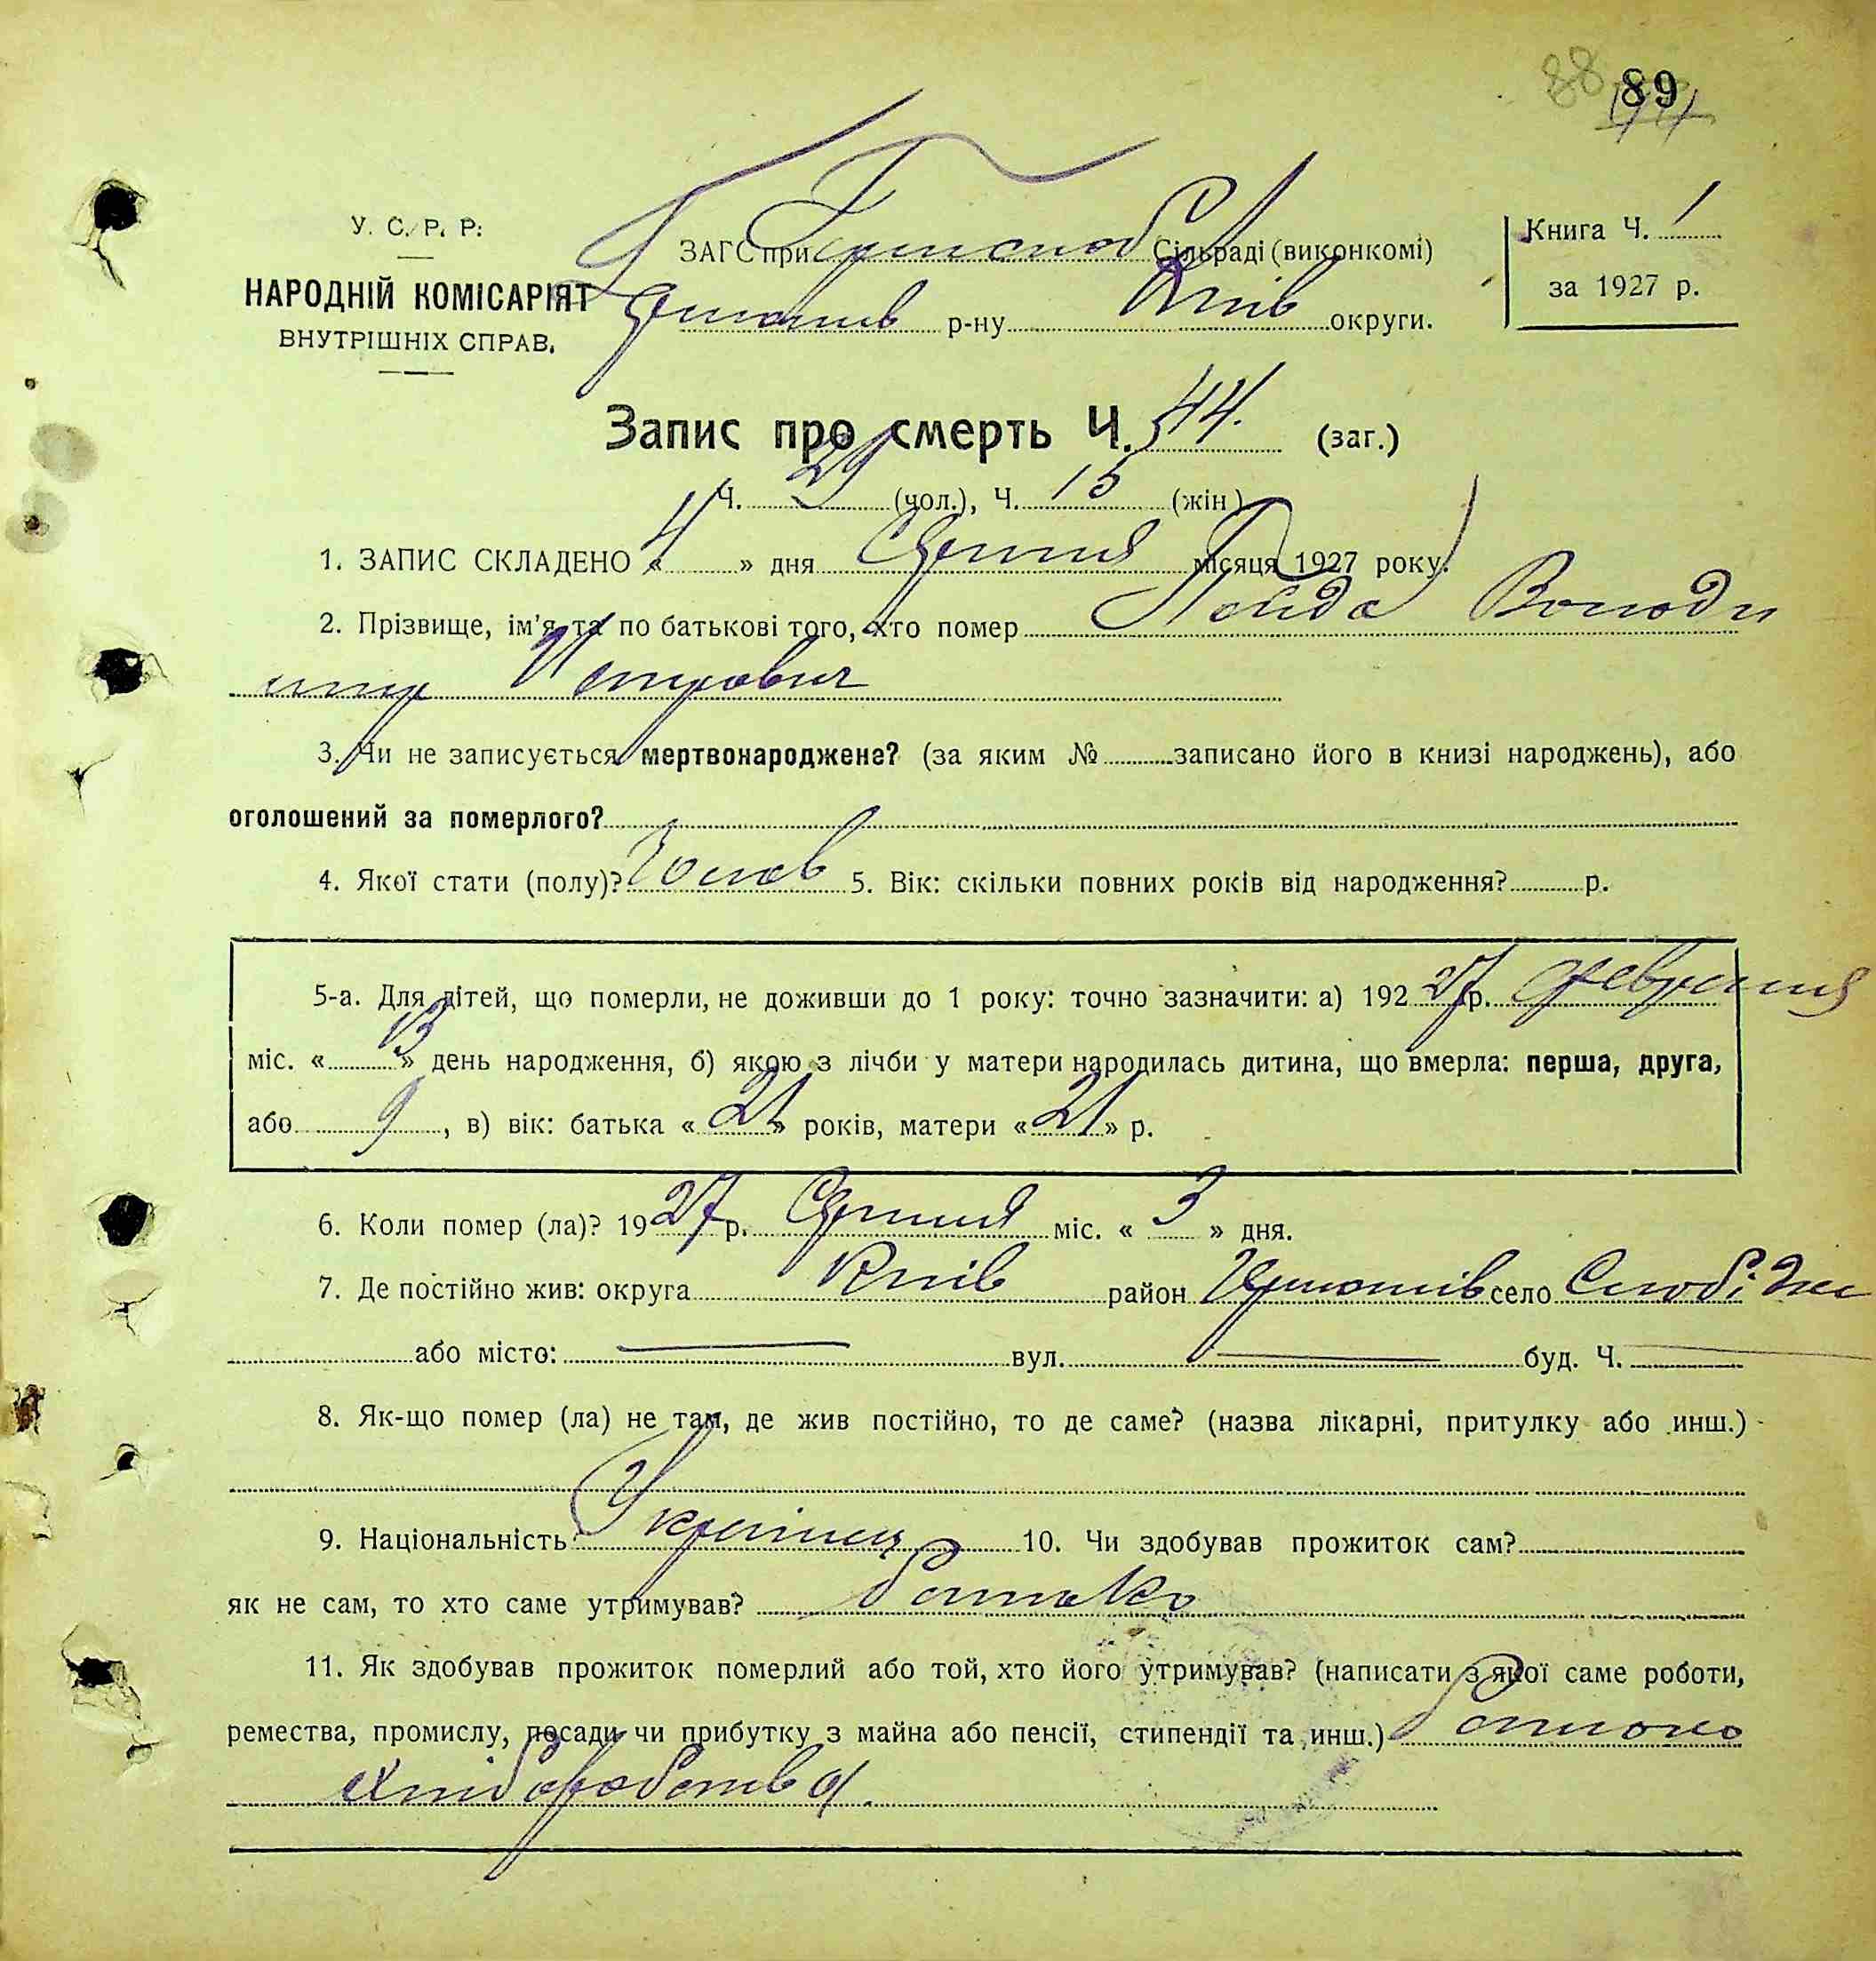 88 89
У. С. Р. Р.
НАРОДНІЙ КОМІСАРІЯТ
ВНУТРІШНІХ СПРАВ.
ЗАГС при Сільраді (виконкомі)
р-ну Київ округи.
Книга Ч. 1
за 1927 р.
Запис про смерть Ч. 44. (заг.)
Ч. 29 (чол.), Ч. 15 (жін)
1. ЗАПИС СКЛАДЕНО « 4 » дня Серпня місяця 1927 року.
2. Прізвище, ім'я та по батькові того, хто помер Володи
мир Петрович
3. Чи не записується мертвонароджене? (за яким № записано його в книзі народжень), або
оголошений за померлого?
4. Якої стати (полу)? Чолов 5. Вік: скільки повних років від народження? р.
5-а. Для дітей, що померли, не доживши до 1 року: точно зазначити: а) 1927 р. февраля
міс. « 13 » день народження, б) якою з лічби у матери народилась дитина, що вмерла: перша, друга,
або , в) вік: батька « 21 » років, матери « 21 » р.
6. Коли помер (ла)? 1927 р. Серпня міс. « 3 » дня.
7. Де постійно жив: округа Київ район село Слобідка
або місто: — вул. — буд. Ч. —
8. Як-що помер (ла) не там, де жив постійно, то де саме? (назва лікарні, притулку або инш.)
9. Національність: Українец 10. Чи здобував прожиток сам?
як не сам, то хто саме утримував? батько
11. Як здобував прожиток померлий або той, хто його утримував? (написати з якої саме роботи,
ремества, промислу, посади чи прибутку з майна або пенсії, стипендії та инш.)
хліборобства.